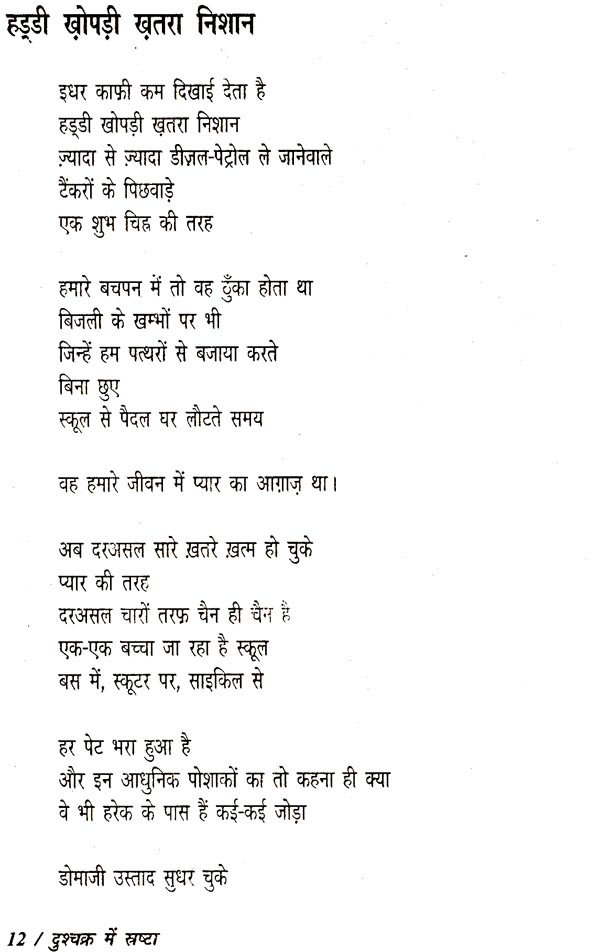 हड्डी ख़ोपड़ी ख़तरा निशान
इधर काफ़ी कम दिखाई देता है
हड्डी खोपड़ी ख़तरा निशान
ज़्यादा से ज़्यादा डीज़ल-पेट्रोल ले जानेवाले
टैंकरों के पिछवाड़े
एक शुभ चिह्न की तरह
हमारे बचपन में तो वह ठुँका होता था
बिजली के खम्भों पर भी
जिन्हें हम पत्थरों से बजाया करते
बिना छुए
स्कूल से पैदल घर लौटते समय
वह हमारे जीवन में प्यार का आग़ाज़ था।
अब दरअसल सारे ख़तरे ख़त्म हो चुके
प्यार की तरह
दरअसल चारों तरफ़ चैन ही चैन है
एक-एक बच्चा जा रहा है स्कूल
बस में, स्कूटर पर, साइकिल से
हर पेट भरा हुआ है
और इन आधुनिक पोशाकों का तो कहना ही क्या
वे भी हरेक के पास हैं कई-कई जोड़ा
डोमाजी उस्ताद सुधर चुके
12 / दुश्चक्र में स्रष्टा